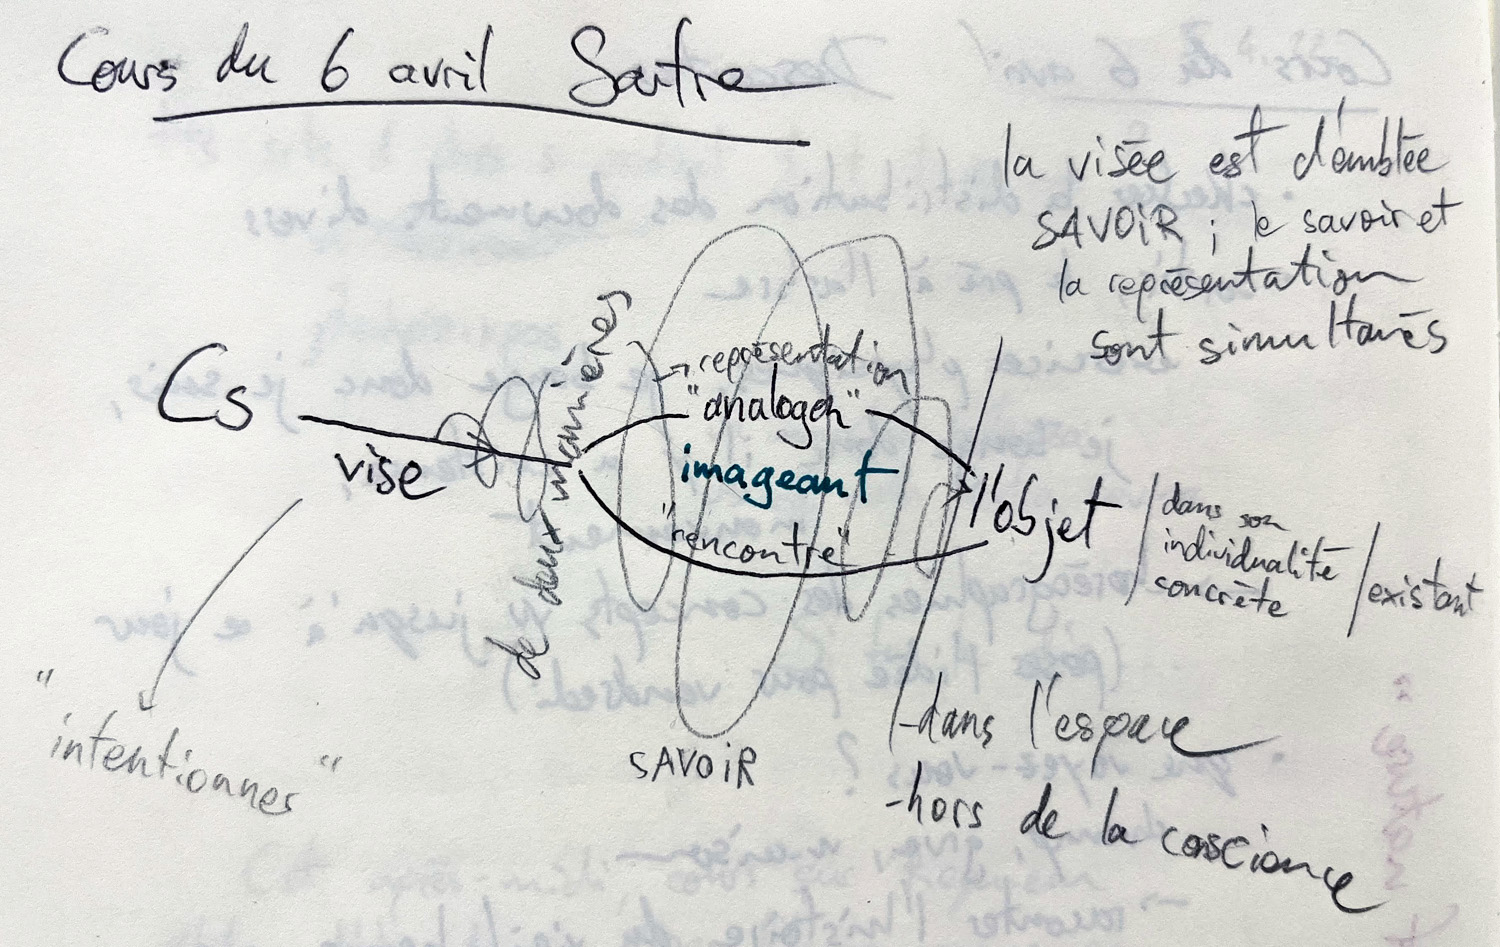 Cours du 6 avril Sartre
la visée est d'emblée
SAVOIR ; le savoir et
la représentation
sont simultanés
Cs
vise
de deux manières
→ représentation
"analogon"
imageant
"rencontre"
l'objet
dans son
individualité
concrète
existant
"intentionner"
SAVOIR
-dans l'espace
-hors de la conscience